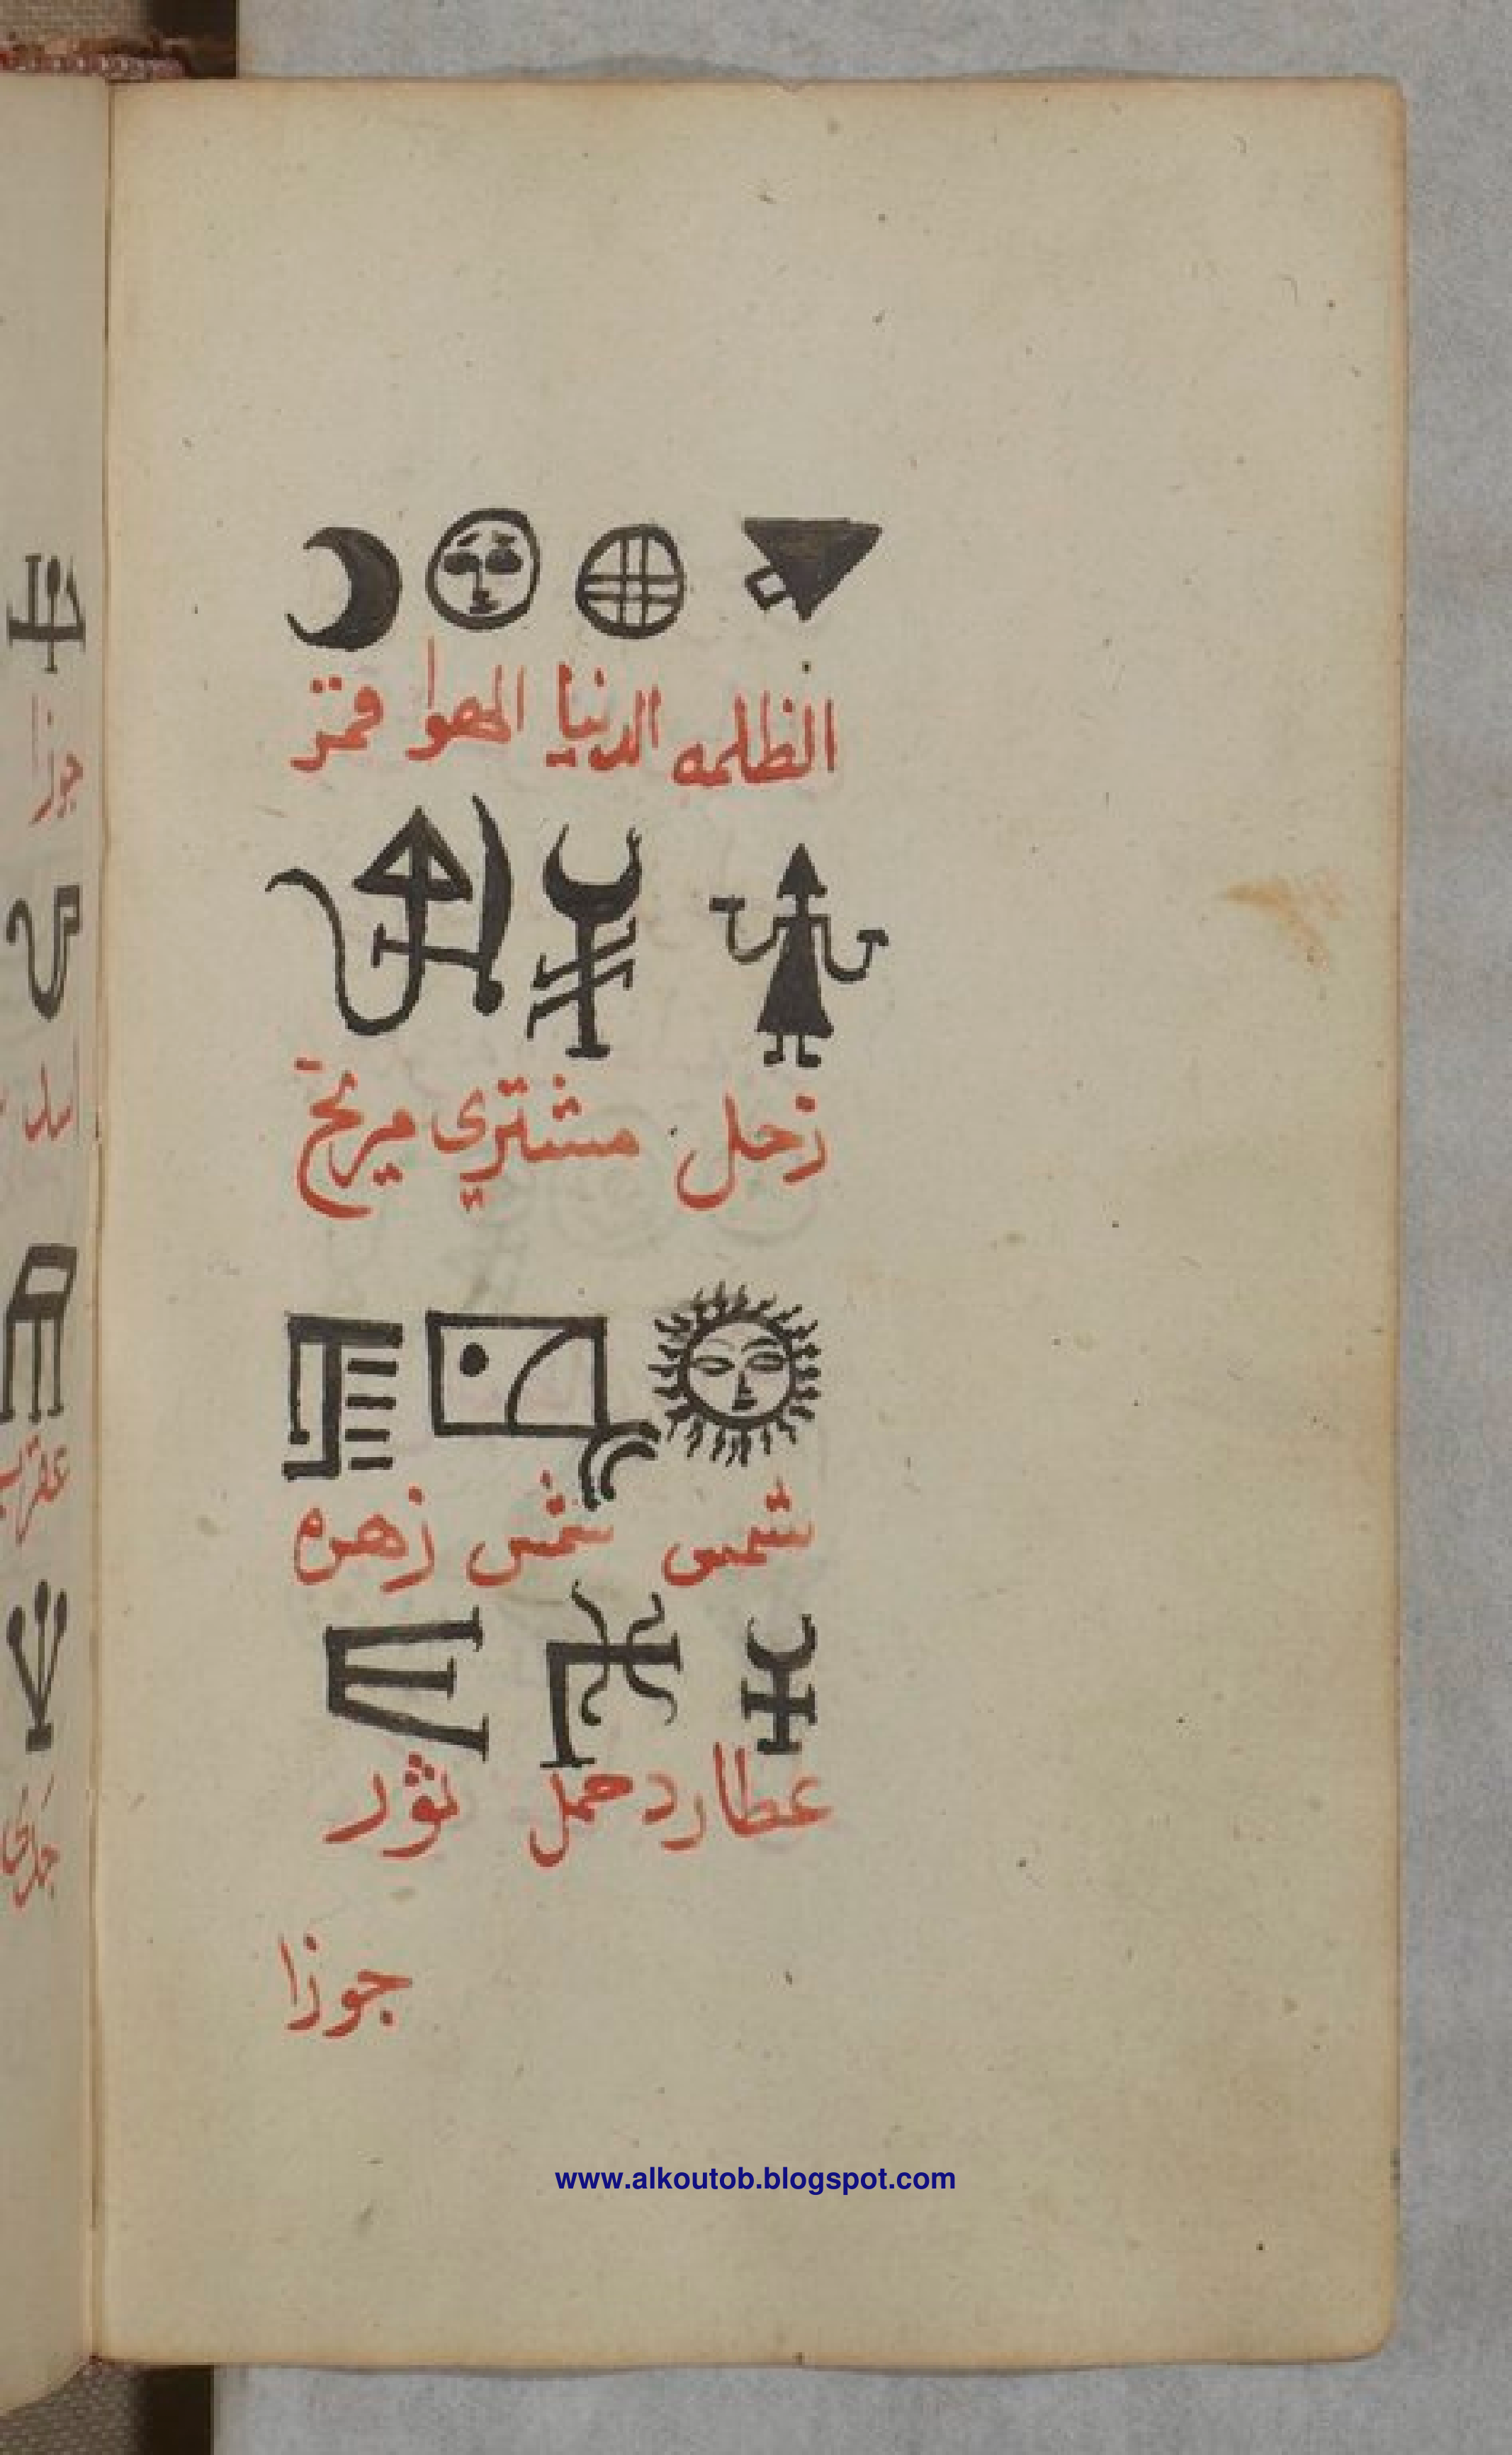 الظلمه الدنيا الهوا قمر
زحل مشتري مريخ
شمس شمس زهره
عطارد حمل ثور
جوزا
جوزا
عقرب
www.alkoutob.blogspot.com